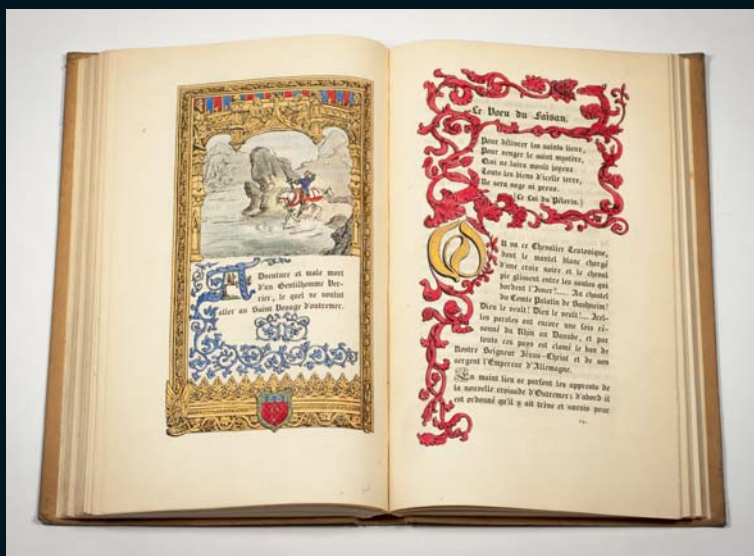 Adventure et male mort
d'un Gentilhomme Ver-
rier, le quel ne voulut
aller au Saint Voyage d'outremer.
Le Voeu du Faisan.
Pour délivrer les saints lieux,
Pour venger le saint mystère,
Qui ne laira moult joyeux
Touts les biens d'icelle terre,
Ne sera sage ni preux.
(Le Lai du Pèlerin.)
Où va ce Chevalier Teutonique,
dont le mantel blanc chargé
d'une croix noire et le cheval
pie glissent entre les saules qui
bordent l'Inner?..... Au chastel
du Comte Palatin de
Dieu le veult! Dieu le veult!... Icel-
les paroles ont encore une fois ré-
sonné du Rhin au Danube, et par
touts ces pays est clamé le ban de
Nostre Seigneur Jésus-Christ et de son
sergent l'Empereur d'Allemagne.
En maint lieu se parfont les apprests de
la nouvelle croisade d'Outremer; d'abord il
est ordonné qu'il y ait trève et surcis pour